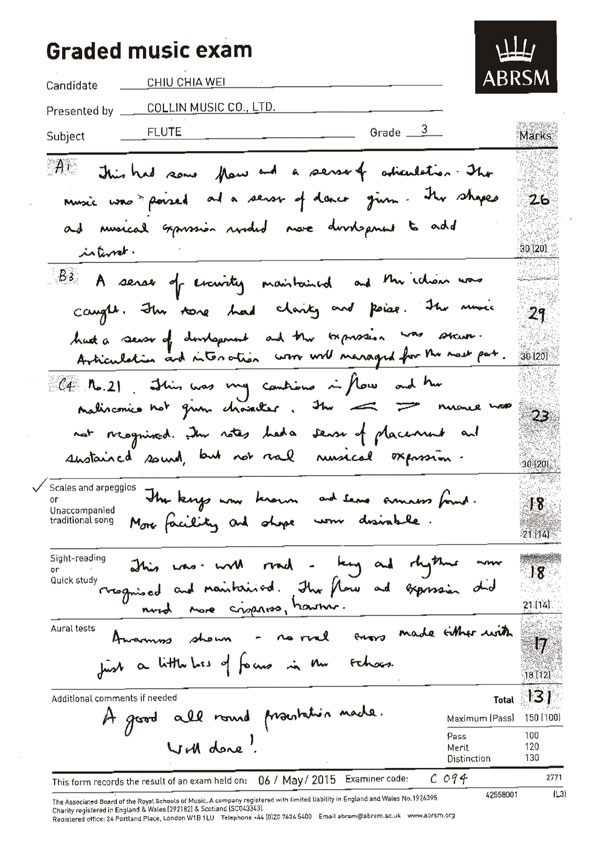 Graded music exam
ABRSM
Candidate CHIU CHIA WEI
Presented by COLLIN MUSIC CO., LTD.
Subject FLUTE Grade 3
Marks
A1 This had some flow and a sense of articulation. The
music was poised and a sense of dance given. The shapes
and musical expression needed more development to add
interest.
26
30 (20)
B3 A sense of security maintained and the idiom was
caught. The tone had clarity and poise. The music
had a sense of development and the expression was
Articulation and intonation were well managed for the most part.
29
30 (20)
C4 No.21. This was very cautious in flow and the
not given character. The < > nuance was
not recognised. The notes had a sense of placement and
sustained sound, but not real musical expression.
23
30 (20)
Scales and arpeggios
or
Unaccompanied
traditional song
The keys were known and some evenness found.
More facility and shape were desirable.
18
21 (14)
Sight-reading
or
Quick study
This was well read - key and rhythms were
recognised and maintained. The flow and expression did
need more crispness, however.
18
21 (14)
Aural tests
Awareness shown - no real errors made either with
just a little loss of focus in the echoes.
17
18 (12)
Additional comments if needed
A good all round presentation made.
Well done!
Total 131
Maximum (Pass) 150 (100)
Pass 100
Merit 120
Distinction 130
This form records the result of an exam held on: 06 / May / 2015 Examiner code: C 094 2771
The Associated Board of the Royal Schools of Music. A company registered with limited liability in England and Wales No.1926395. 42558001 (L3)
Charity registered in England & Wales (292182) & Scotland (SC043343).
Registered office: 24 Portland Place, London W1B 1LU Telephone +44 (0)20 7636 5400 Email abrsm@abrsm.ac.uk www.abrsm.org